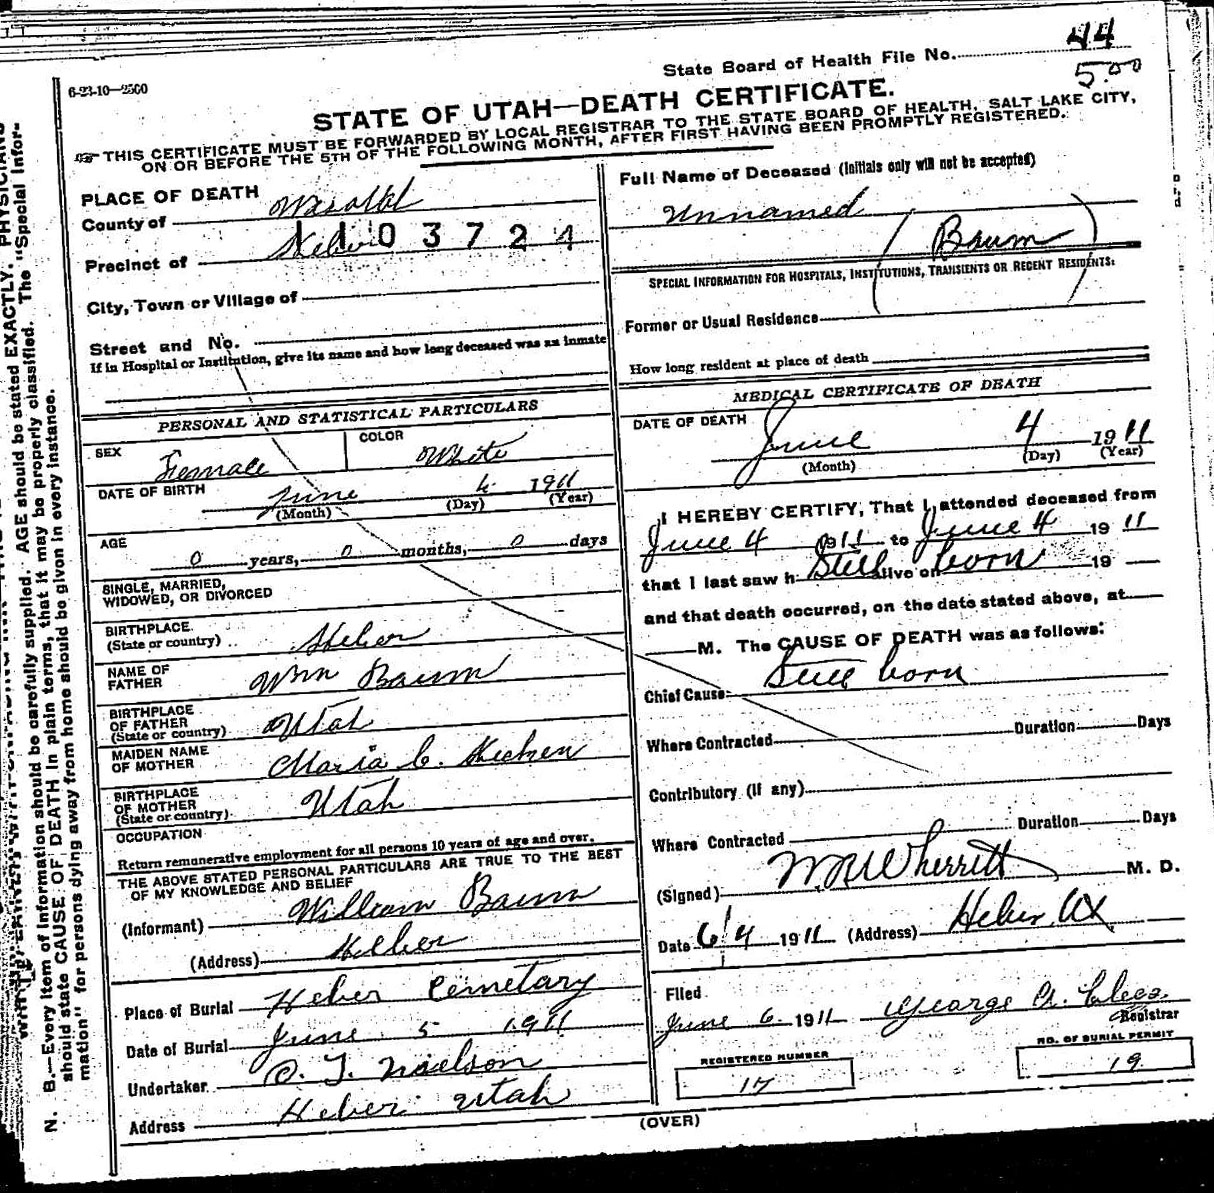 6-23-10—2500
State Board of Health File No. 44
5.00
STATE OF UTAH—DEATH CERTIFICATE.
THIS CERTIFICATE MUST BE FORWARDED BY LOCAL REGISTRAR TO THE STATE BOARD OF HEALTH, SALT LAKE CITY,
ON OR BEFORE THE 5TH OF THE FOLLOWING MONTH, AFTER FIRST HAVING BEEN PROMPTLY REGISTERED.
PLACE OF DEATH
County of Wasatch
1103724
Precinct of Heber
City, Town or Village of
Street and No.
If in Hospital or Institution, give its name and how long deceased was an inmate
PERSONAL AND STATISTICAL PARTICULARS
SEX Female COLOR White
DATE OF BIRTH June 4 1911
(Month) (Day) (Year)
AGE 0 years, 0 months, 0 days
SINGLE, MARRIED,
WIDOWED, OR DIVORCED
BIRTHPLACE
(State or country) Heber
NAME OF
FATHER Wm Baum
BIRTHPLACE
OF FATHER
(State or country) Utah
MAIDEN NAME
OF MOTHER Maria C.
BIRTHPLACE
OF MOTHER
(State or country) Utah
OCCUPATION
Return remunerative employment for all persons 10 years of age and over.
THE ABOVE STATED PERSONAL PARTICULARS ARE TRUE TO THE BEST
OF MY KNOWLEDGE AND BELIEF
(Informant) William Baum
(Address) Heber
Place of Burial Heber Cemetary
Date of Burial June 5 1911
Undertaker O. T. Nielson
Address Heber Utah
Full Name of Deceased (Initials only will not be accepted)
Unnamed (Baum)
SPECIAL INFORMATION FOR HOSPITALS, INSTITUTIONS, TRANSIENTS OR RECENT RESIDENTS:
Former or Usual Residence
How long resident at place of death
MEDICAL CERTIFICATE OF DEATH
DATE OF DEATH June 4 1911
(Month) (Day) (Year)
I HEREBY CERTIFY, That I attended deceased from
June 4 1911 to June 4 1911
that I last saw h Still alive on born 19
and that death occurred, on the date stated above, at
M. The CAUSE OF DEATH was as follows:
Chief Cause Still born
Where Contracted Duration Days
Contributory (if any)
Where Contracted Duration Days
(Signed) W.R. Wherritt M. D.
Date 6/4 1911 (Address) Heber, Ut
Filed
June 6 1911 George A.
Registrar
REGISTERED NUMBER
17
NO. OF BURIAL PERMIT
19
(OVER)
N. B.—Every item of information should be carefully supplied. AGE should be stated EXACTLY. PHYSICIANS
should state CAUSE OF DEATH in plain terms, that it may be properly classified. The "Special Infor-
mation" for persons dying away from home should be given in every instance.